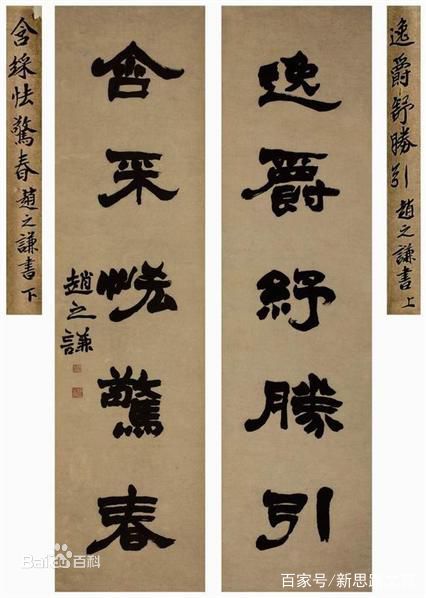 逸爵舒勝引 趙之謙書 上
逸爵紓勝引
含采怯驚春
趙之謙
含採怯驚春 趙之謙書 下
Baidu百科
百家号/新思路文苑